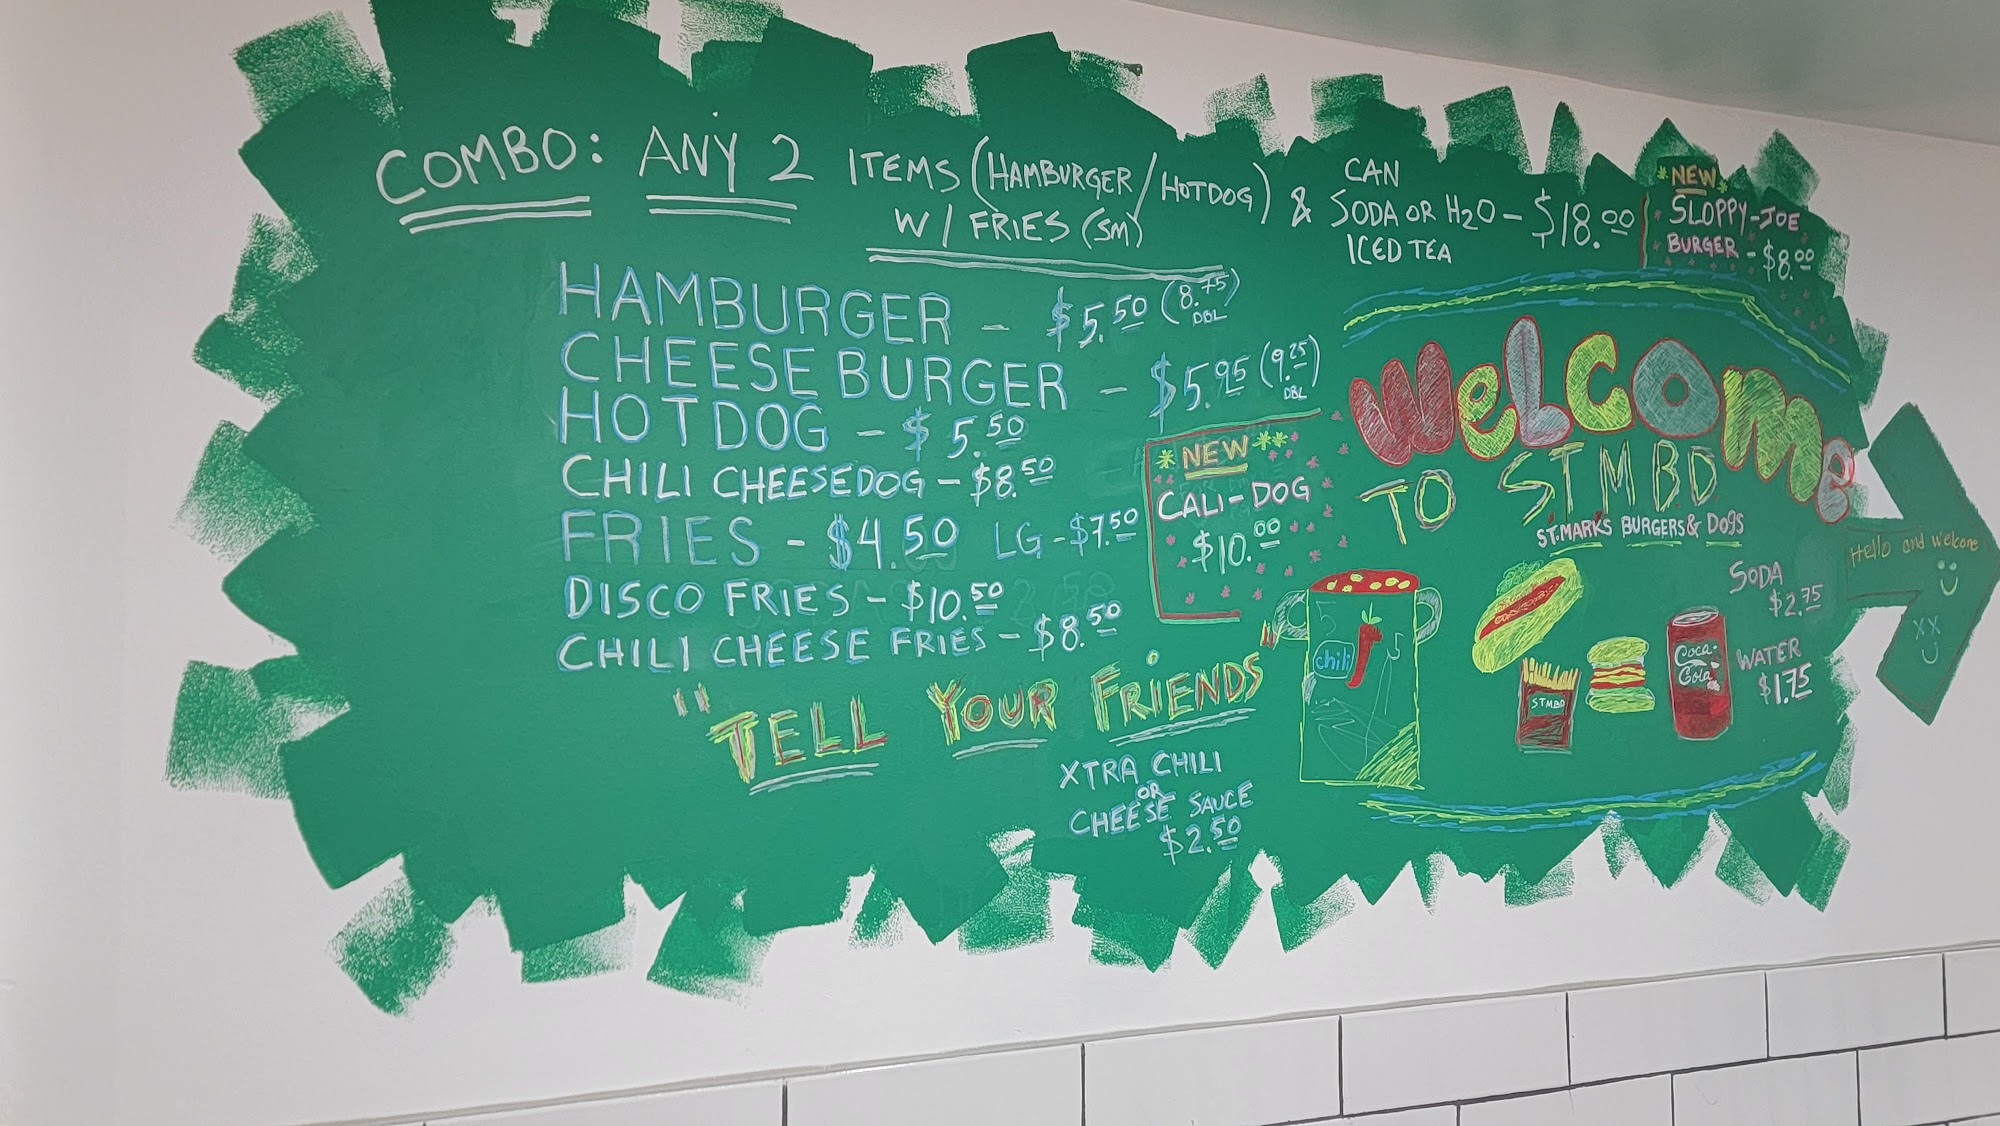 COMBO: ANY 2 ITEMS (HAMBURGER/HOTDOG) & CAN
W/ FRIES (SM) SODA OR H2O - $18.00
ICED TEA
*NEW*
SLOPPY-JOE
BURGER - $8.00
HAMBURGER - $5.50 (8.75 DBL)
CHEESEBURGER - $5.95 (9.25 DBL)
HOTDOG - $5.50
CHILI CHEESEDOG - $8.50
FRIES - $4.50 LG - $7.50
DISCO FRIES - $10.50
CHILI CHEESE FRIES - $8.50
"TELL YOUR FRIENDS"
XTRA CHILI
OR
CHEESE SAUCE
$2.50
*NEW**
CALI-DOG
$10.00
WeLCOMe
TO S.T.M.B.D
ST.MARKS BURGERS & DOGS
chili
STMBD
Coca-
Cola
SODA
$2.75
WATER
$1.75
Hello and welcome
XX